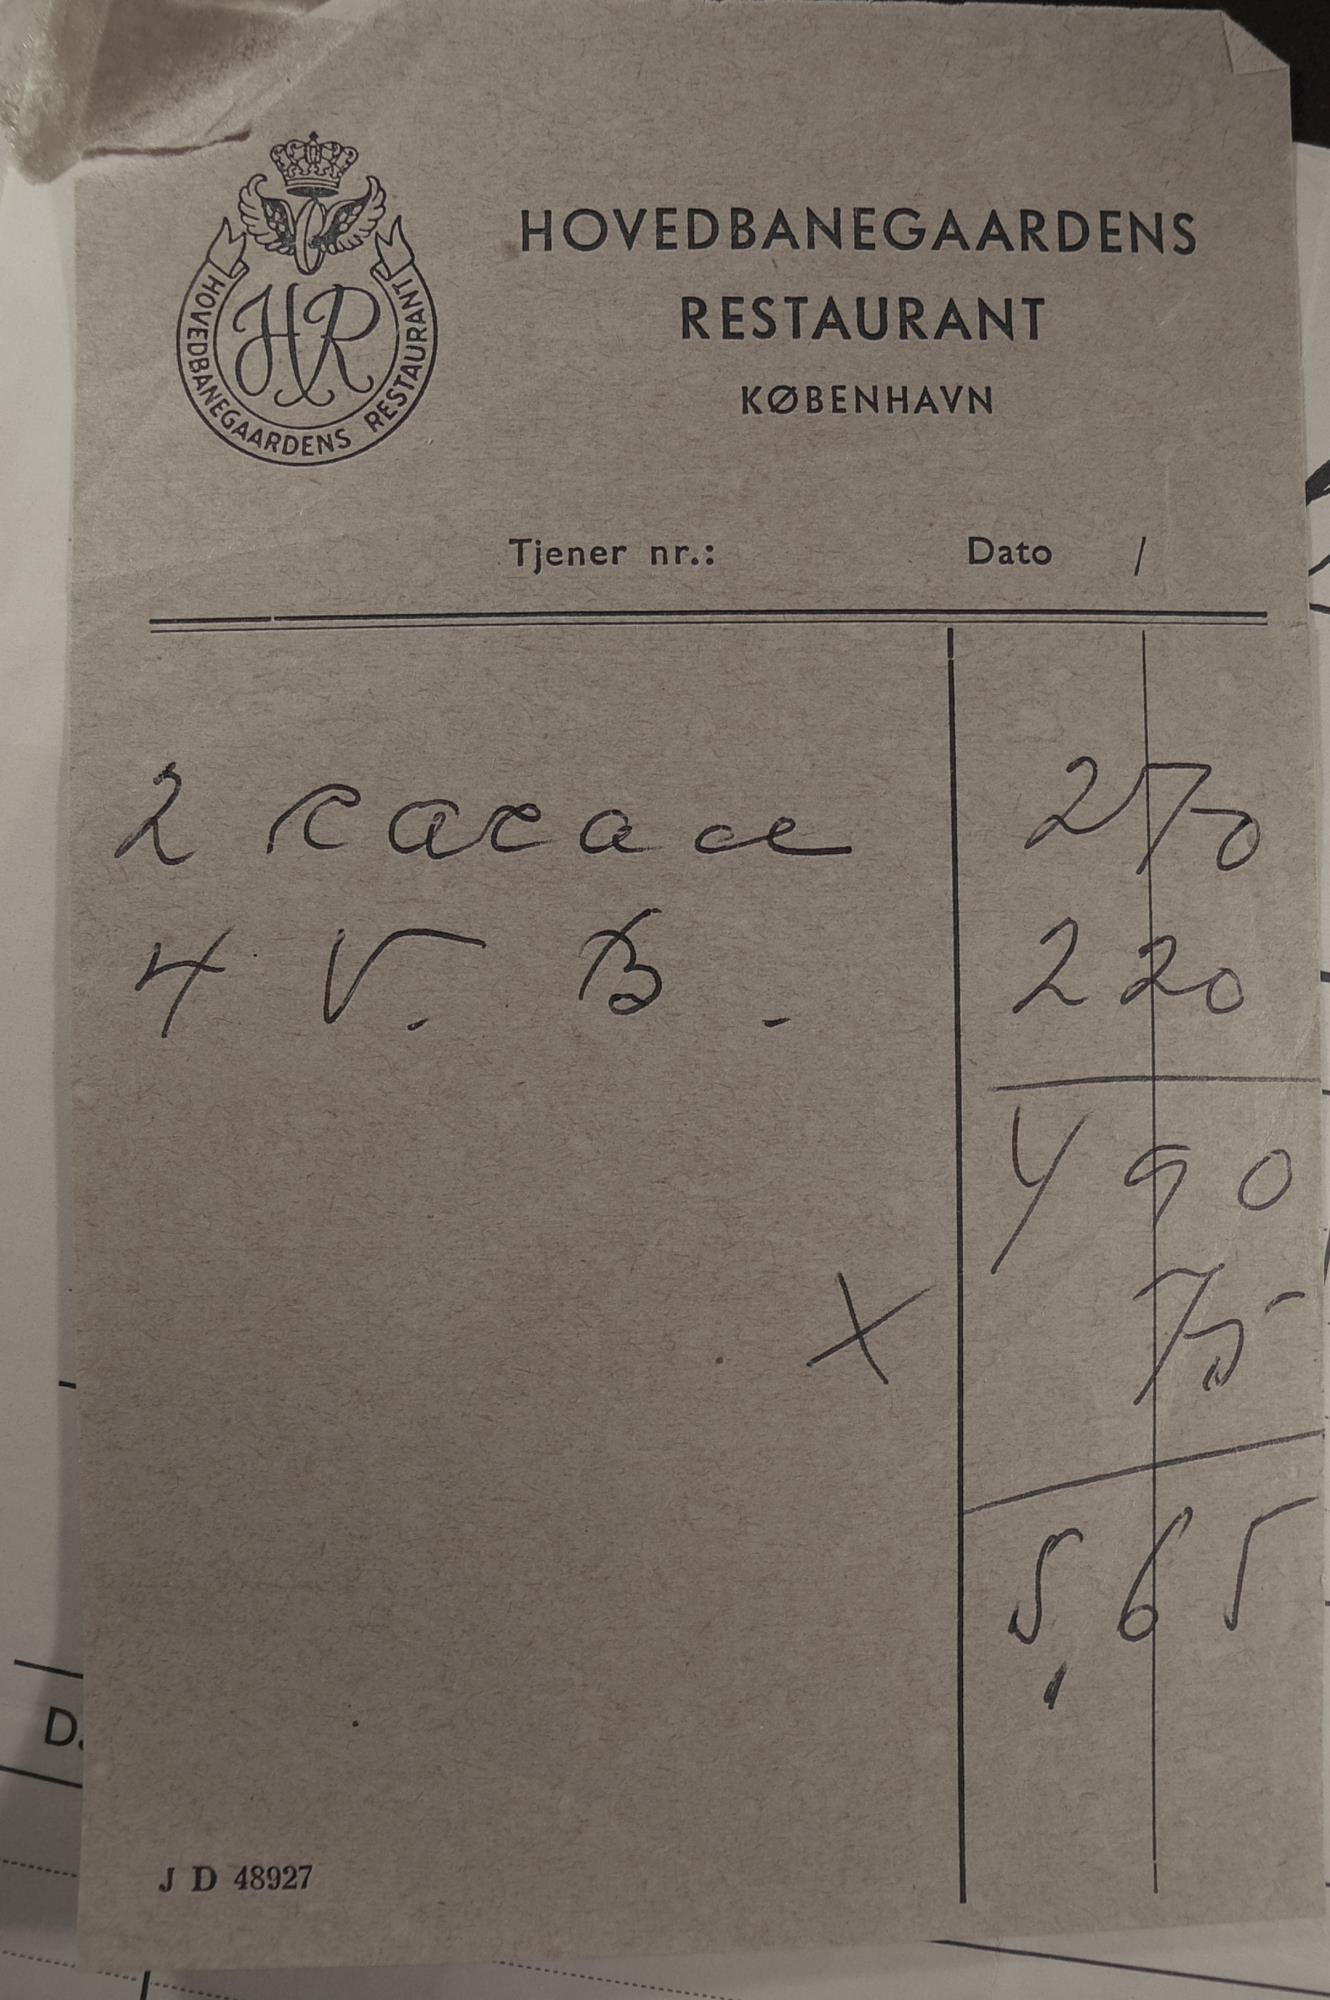 HR
HOVEDBANEGAARDENS RESTAURANT
HOVEDBANEGAARDENS
RESTAURANT
KØBENHAVN
Tjener nr.: Dato /
2 cacao 2 70
4 V. B. 2 20
4 90
X 75
5,65
D.
J D 48927